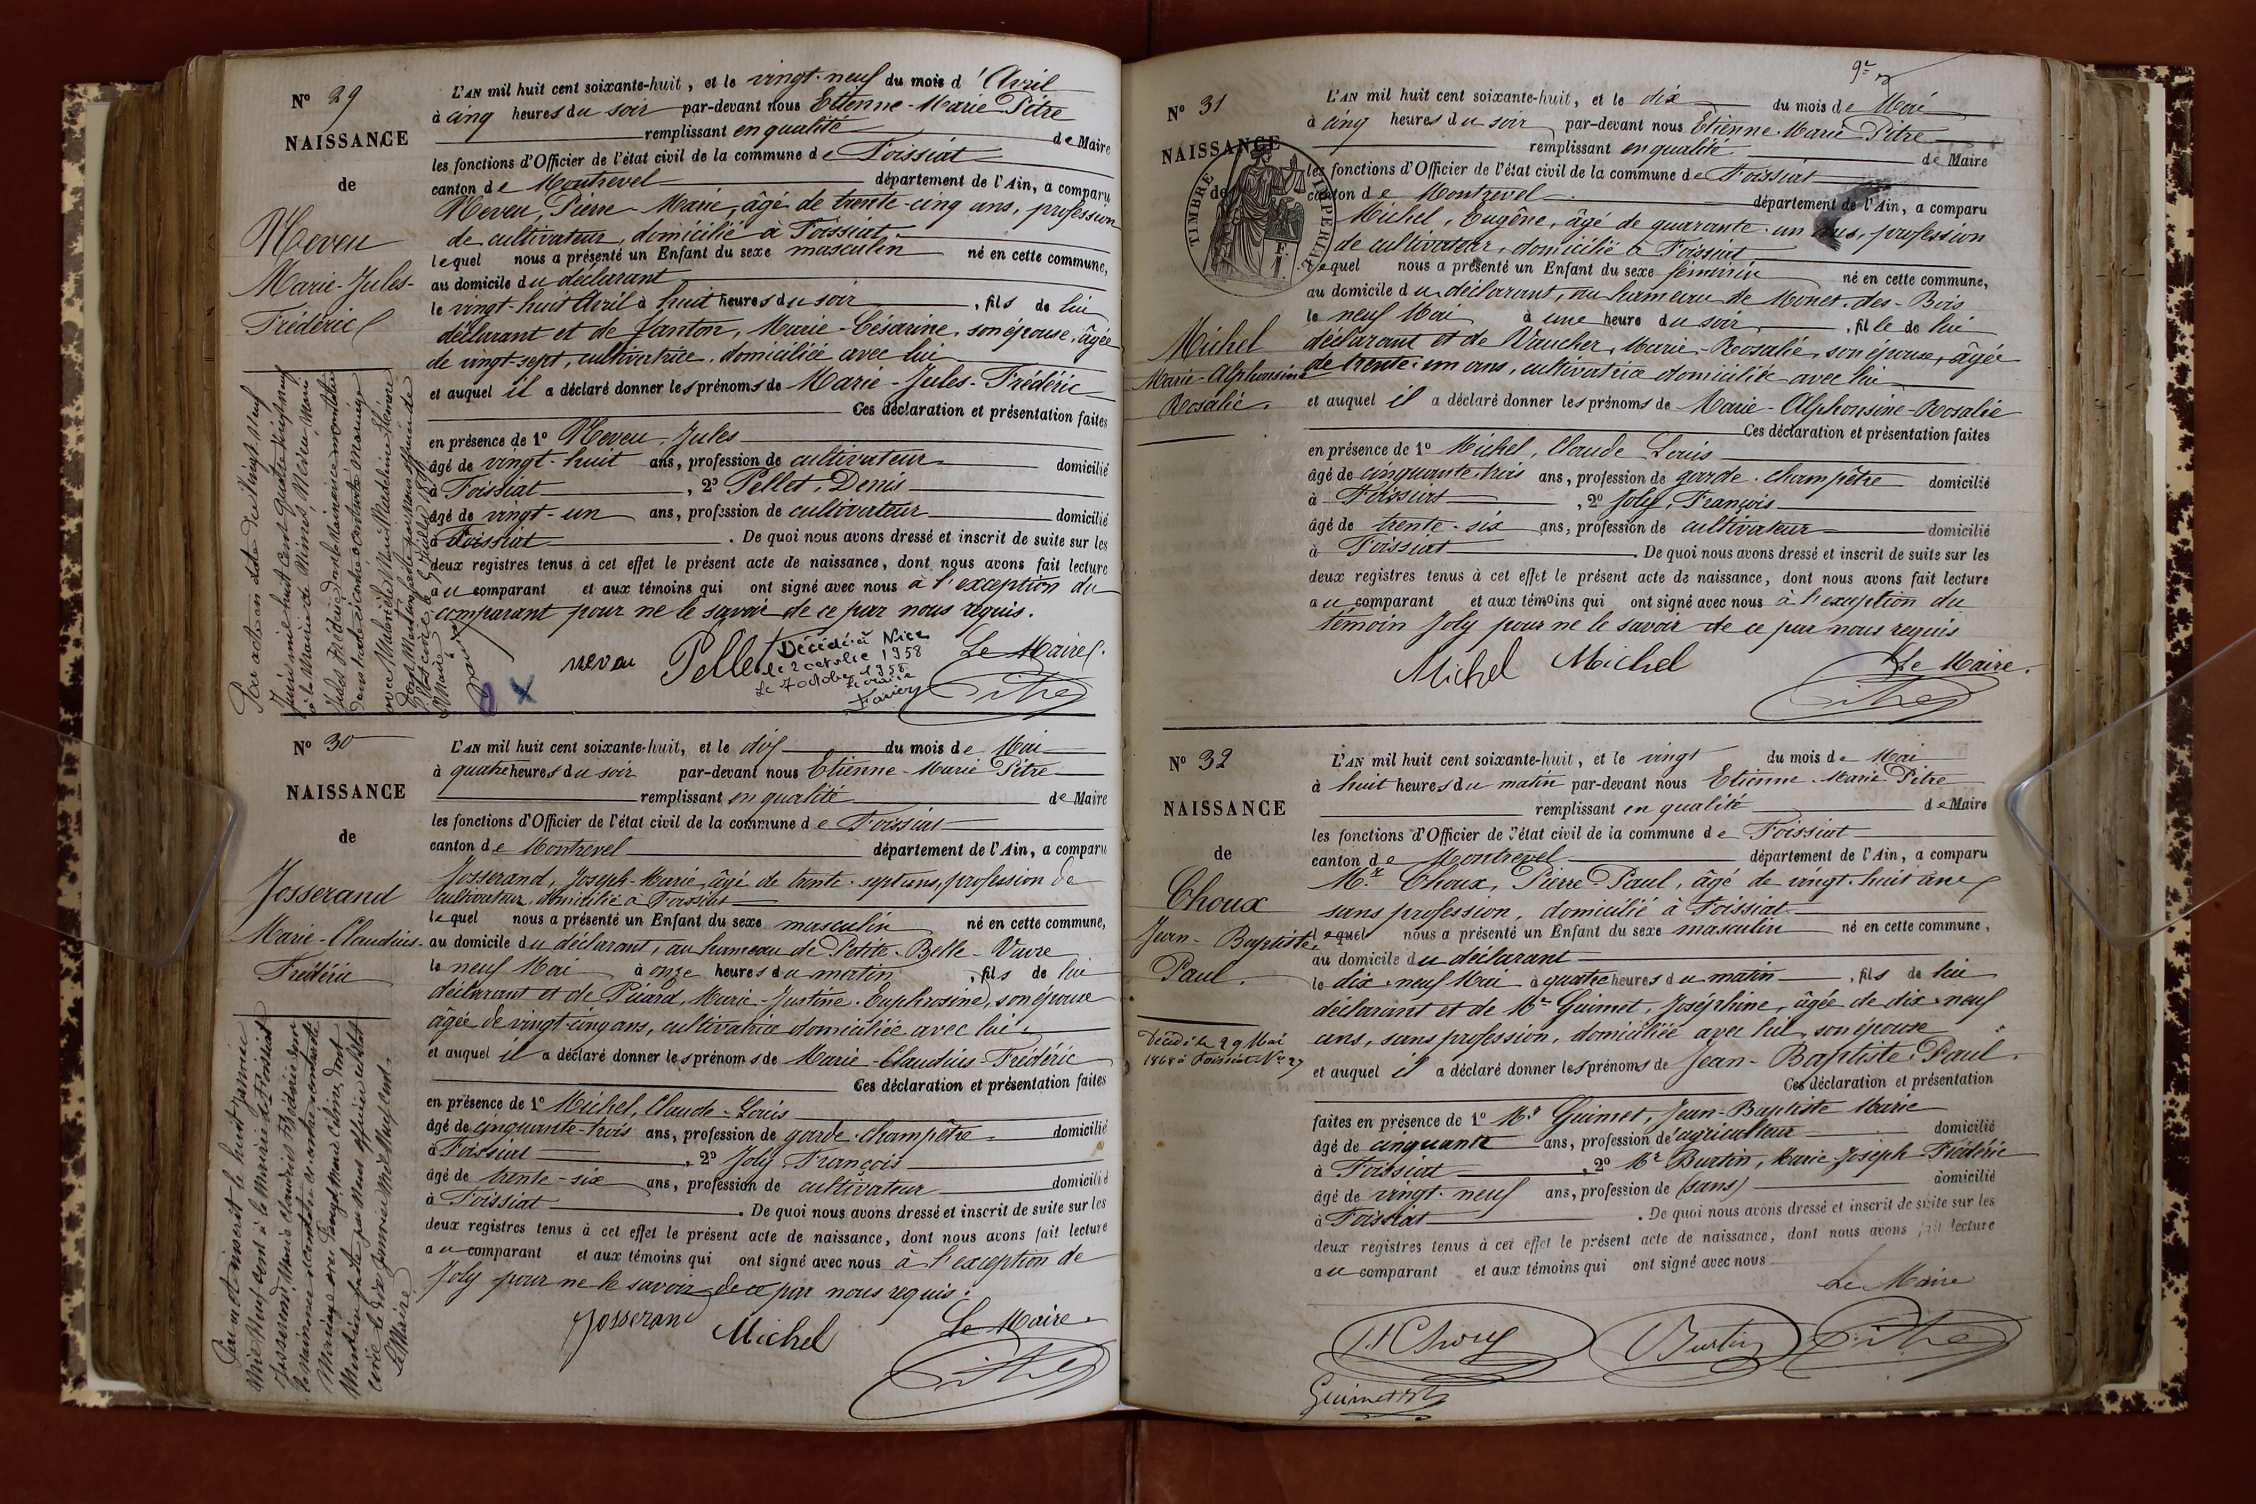 N° 29
NAISSANCE
de
Neveu
Marie-Jules-
Frédéric
L'AN mil huit cent soixante-huit, et le vingt-neuf du mois d'Avril
à cinq heures du soir par-devant nous Etienne-Marie Pitre
remplissant en qualité de Maire
les fonctions d'Officier de l'état civil de la commune de Foissiat
canton de Montrevel département de l'Ain, a comparu
Neveu, Pierre-Marie, âgé de trente-cinq ans, profession
de cultivateur, domicilié à Foissiat
lequel nous a présenté un Enfant du sexe masculin né en cette commune,
au domicile du déclarant
le vingt-huit Avril à huit heures du soir, fils de lui
déclarant et de Janton, Marie-Césarine, son épouse, âgée
de vingt-sept, cultivatrice, domiciliée avec lui
et auquel il a déclaré donner les prénoms de Marie-Jules-Frédéric
Ces déclaration et présentation faites
en présence de 1° Neveu, Jules
âgé de vingt-huit ans, profession de cultivateur domicilié
à Foissiat, 2° Pellet, Denis
âgé de vingt-un ans, profession de cultivateur domicilié
à Foissiat. De quoi nous avons dressé et inscrit de suite sur les
deux registres tenus à cet effet le présent acte de naissance, dont nous avons fait lecture
au comparant et aux témoins qui ont signé avec nous à l'exception du
comparant pour ne le savoir de ce par nous requis.
neveu Pellet Le Maire
Pitre
Décédé à Nice
le 2 octobre 1958
Le 7 octobre 1958
Le maire
N° 30
NAISSANCE
de
Josserand
Marie-Claudius-
Frédéric
Par acte inscrit le huit Janvier
mil neuf cent à la Mairie de Foissiat
Josserand, Marie Claudius Frédéric dont
la naissance est constatée ci-contre a contracté
Mariage avec
Mention faite par Nous officier de l'état
civil le dix Janvier mil neuf cent.
Le Maire
L'AN mil huit cent soixante-huit, et le dix du mois de Mai
à quatre heures du soir par-devant nous Etienne-Marie Pitre
remplissant en qualité de Maire
les fonctions d'Officier de l'état civil de la commune de Foissiat
canton de Montrevel département de l'Ain, a comparu
Josserand, Joseph-Marie, âgé de trente-sept ans, profession de
cultivateur, domicilié à Foissiat
lequel nous a présenté un Enfant du sexe masculin né en cette commune,
au domicile du déclarant, au hameau de Petite-Belle-Vavre
le neuf Mai à onze heures du matin, fils de lui
déclarant et de Picard, Marie-Justine-Euphrosine, son épouse
âgée de vingt-cinq ans, cultivatrice domiciliée avec lui
et auquel il a déclaré donner les prénoms de Marie-Claudius-Frédéric
Ces déclaration et présentation faites
en présence de 1° Michel, Claude-Louis
âgé de cinquante-trois ans, profession de garde-champêtre domicilié
à Foissiat, 2° Joly François
âgé de trente-six ans, profession de cultivateur domicilié
à Foissiat. De quoi nous avons dressé et inscrit de suite sur les
deux registres tenus à cet effet le présent acte de naissance, dont nous avons fait lecture
au comparant et aux témoins qui ont signé avec nous à l'exception de
Joly pour ne le savoir de ce par nous requis.
Josserand Michel Le Maire
Pitre
9e
N° 31
NAISSANCE
de
TIMBRE IMPERIAL
Michel
Marie-Alphonsine
Rosalie.
L'AN mil huit cent soixante-huit, et le dix du mois de Mai
à cinq heures du soir par-devant nous Etienne-Marie Pitre
remplissant en qualité de Maire
les fonctions d'Officier de l'état civil de la commune de Foissiat
canton de Montrevel département de l'Ain, a comparu
Michel, Eugène, âgé de quarante-un ans, profession
de cultivateur, domicilié à Foissiat
lequel nous a présenté un Enfant du sexe féminin né en cette commune,
au domicile du déclarant, au hameau de Monet-des-Bois
le neuf Mai à une heure du soir, fille de lui
déclarant et de Vaucher, Marie-Rosalie, son épouse, âgée
de trente-un ans, cultivatrice domiciliée avec lui
et auquel il a déclaré donner les prénoms de Marie-Alphonsine-Rosalie
Ces déclaration et présentation faites
en présence de 1° Michel, Claude Louis
âgé de cinquante-trois ans, profession de garde-champêtre domicilié
à Foissiat, 2° Joly, François
âgé de trente-six ans, profession de cultivateur domicilié
à Foissiat. De quoi nous avons dressé et inscrit de suite sur les
deux registres tenus à cet effet le présent acte de naissance, dont nous avons fait lecture
au comparant et aux témoins qui ont signé avec nous à l'exception du
témoin Joly pour ne le savoir de ce par nous requis
Michel Michel Le Maire.
Pitre
N° 32
NAISSANCE
de
Choux
Jean-Baptiste-
Paul.
Décédé le 29 Mai
1868 à Foissiat N° 27
L'AN mil huit cent soixante-huit, et le vingt du mois de Mai
à huit heures du matin par-devant nous Etienne-Marie Pitre
remplissant en qualité de Maire
les fonctions d'Officier de l'état civil de la commune de Foissiat
canton de Montrevel département de l'Ain, a comparu
Mr. Choux, Pierre-Paul, âgé de vingt-huit ans
sans profession, domicilié à Foissiat
lequel nous a présenté un Enfant du sexe masculin né en cette commune,
au domicile du déclarant
le dix-neuf Mai à quatre heures du matin, fils de lui
déclarant et de Me Guimet, Joséphine, âgée de dix-neuf
ans, sans profession, domiciliée avec lui, son épouse
et auquel il a déclaré donner les prénoms de Jean-Baptiste-Paul.
Ces déclaration et présentation
faites en présence de 1° Mr Guimet, Jean-Baptiste Marie
âgé de cinquante ans, profession d'agriculteur domicilié
à Foissiat, 2° Mr Burtin, Marie-Joseph-Frédéric
âgé de vingt-neuf ans, profession de (sans) domicilié
à Foissiat. De quoi nous avons dressé et inscrit de suite sur les
deux registres tenus à cet effet le présent acte de naissance, dont nous avons fait lecture
au comparant et aux témoins qui ont signé avec nous
Le Maire
P Choux Burtin Pitre
Guimet